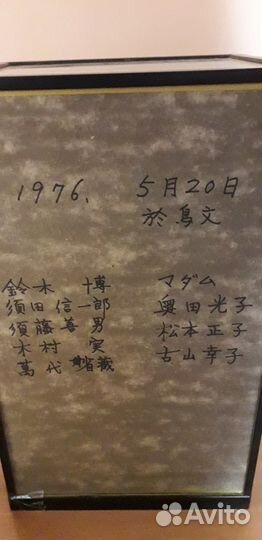 1976. 5月20日
於鳥文
鈴木 博
須田信一郎
須藤善男
木村 実
萬代 省蔵
マダム
奥田光子
松本正子
古山幸子
Avito